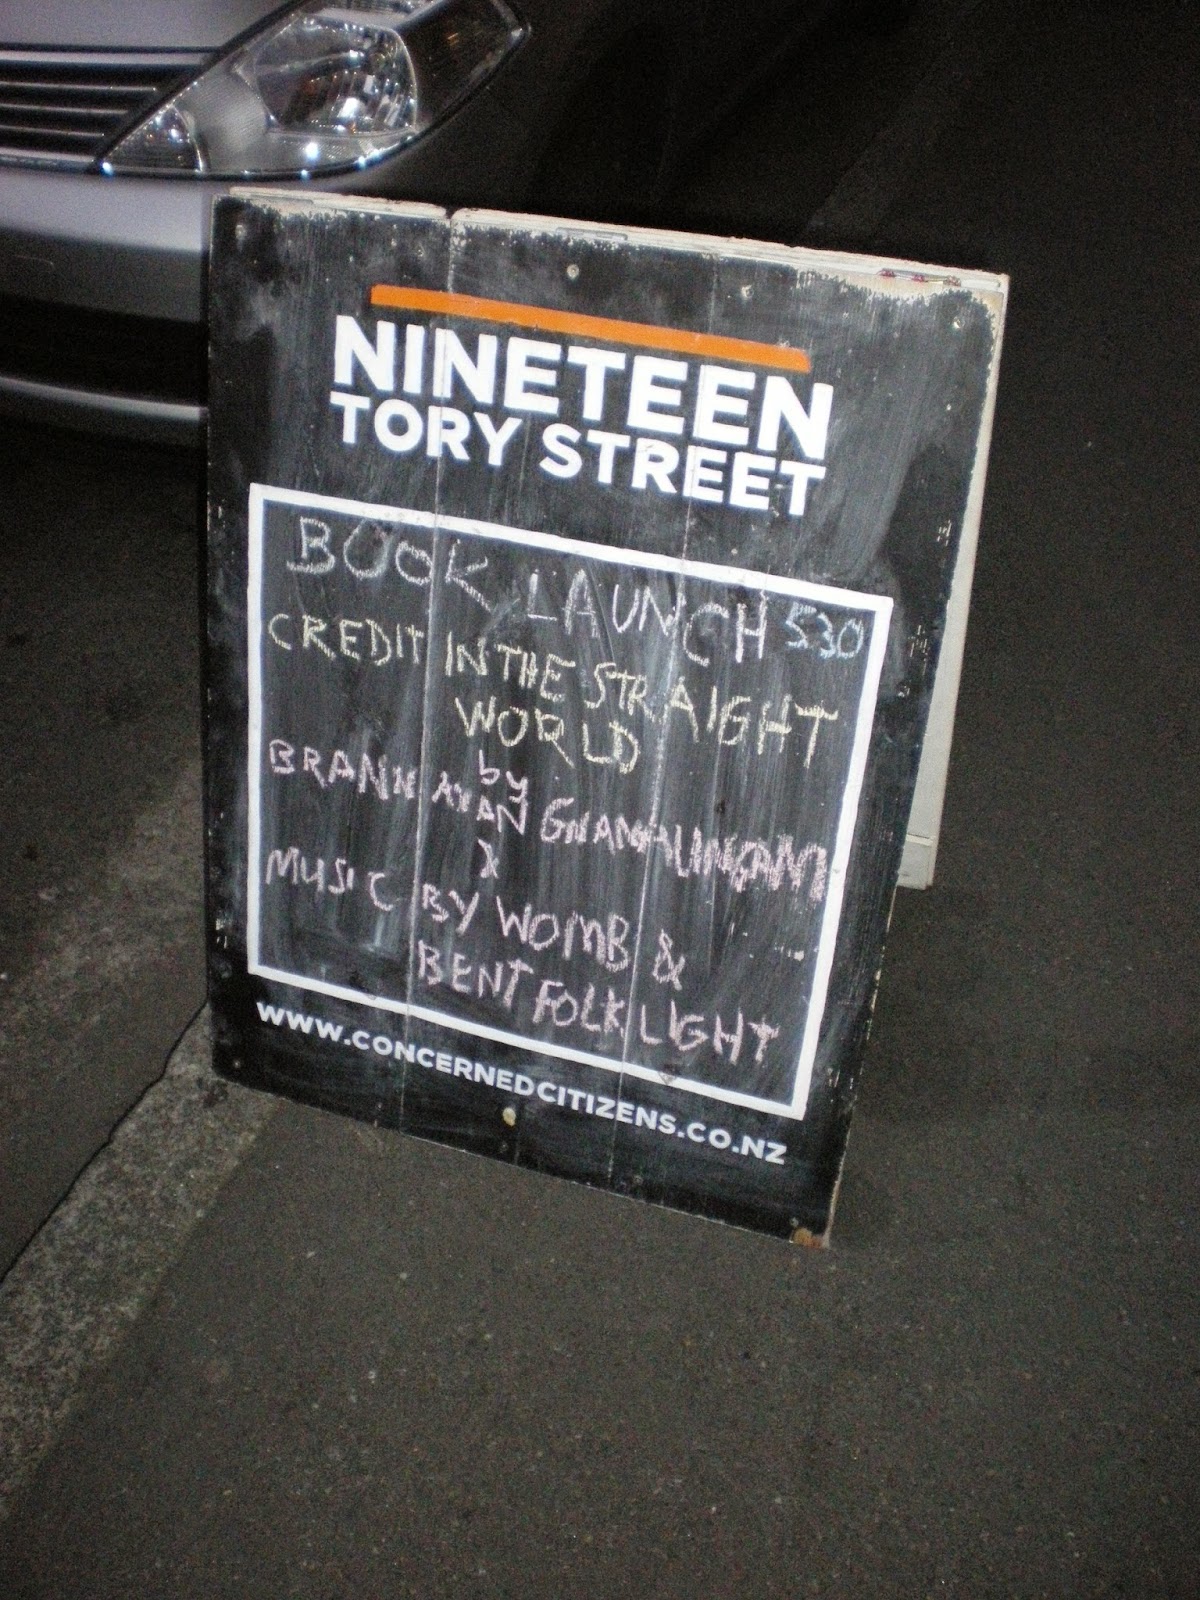 NINETEEN
TORY STREET
BOOK LAUNCH 530
CREDIT IN THE STRAIGHT
WORLD
by
BRANNAVAN GNANALINGAM
&
MUSIC BY WOMB &
BENT FOLK LIGHT
WWW.CONCERNEDCITIZENS.CO.NZ